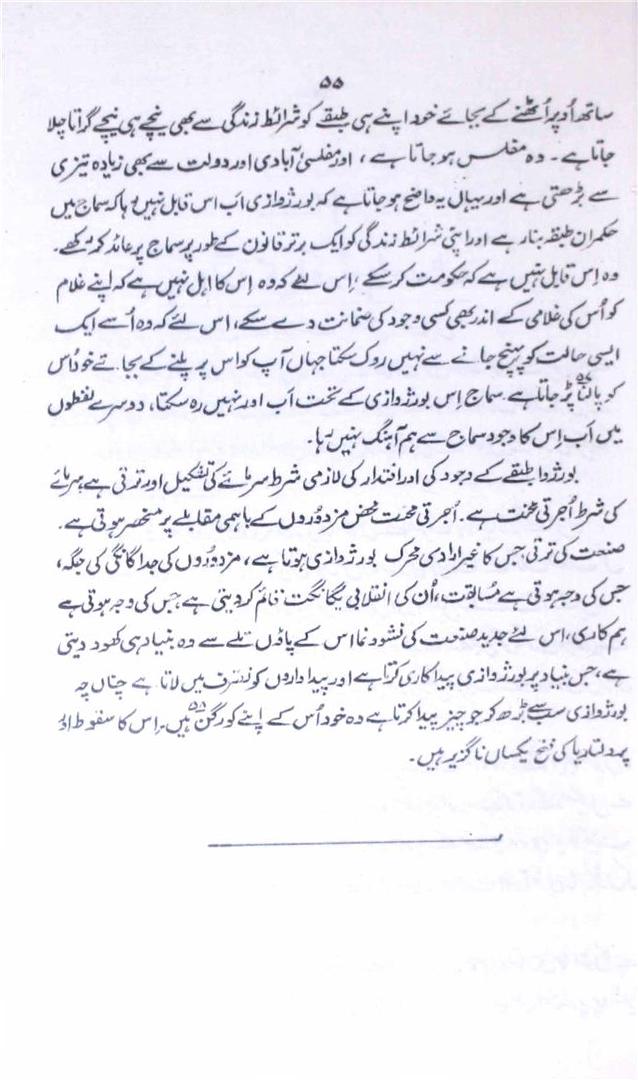 ۵۵
ساتھ اُوپر اُٹھنے کے بجائے خود اپنے ہی طبقے کو شرائط زندگی سے بھی نیچے ہی نیچے گراتا چلا
جاتا ہے۔ وہ مفلس ہو جاتا ہے، اور مفلسی آبادی اور دولت سے بھی زیادہ تیزی
سے بڑھتی ہے اور یہاں یہ واضح ہو جاتا ہے کہ بورژوازی اب اس قابل نہیں رہا کہ سماج میں
حکمران طبقہ بنا رہے اور اپنی شرائط زندگی کو ایک برتر قانون کے طور پر سماج پر عائد کر رکھے۔
وہ اِس قابل نہیں ہے کہ حکومت کر سکے، اِس لئے کہ وہ اِس کا اہل نہیں ہے کہ اپنے غلام
کو اُس کی غلامی کے اندر بھی کسی وجود کی ضمانت دے سکے، اس لئے کہ وہ اُسے ایک
ایسی حالت کو پہنچ جانے سے نہیں روک سکتا جہاں آپ کو اس پر پلنے کے بجائے خود اُس
کو پالنا۵۷ پڑ جاتا ہے۔ سماج اِس بورژوازی کے تحت اَب اور نہیں رہ سکتا، دوسرے لفظوں
میں اَب اِس کا وجود سماج سے ہم آہنگ نہیں رہا۔
بورژوا طبقے کے وجود کی اور اقتدار کی لازمی شرط سرمائے کی تشکیل اور ترقی ہے، سرمائے
کی شرط اُجرتی محنت ہے۔ اُجرتی محنت محض مزدوروں کے باہمی مقابلے پر منحصر ہوتی ہے۔
صنعت کی ترقی، جس کا غیر ارادی محرک بورژوازی ہوتا ہے، مزدوروں کی جداگانگی کی جگہ،
جس کی وجہ ہوتی ہے مُسابقت، اُن کی انقلابی یگانگت قائم کر دیتی ہے، جس کی وجہ ہوتی ہے
ہم کاری، اس لئے جدید صنعت کی نشوونما اس کے پاؤں تلے سے وہ بنیاد ہی کھود دیتی
ہے، جس بنیاد پر بورژوازی پیداکاری کرتا ہے اور پیداواروں کو تصرف میں لاتا ہے چناں چہ
بورژوازی سب سے بڑھ کر جو چیز پیدا کرتا ہے وہ خود اُس کے اپنے گورکن۵۸ ہیں۔ اِس کا سقوط اور
پرولتاریا کی فتح یکساں ناگزیر ہیں۔